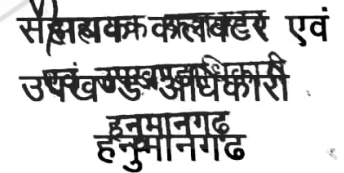 सहायक कलक्टर एवं
उपखण्ड अधिकारी
हनुमानगढ
हनुमानगढ